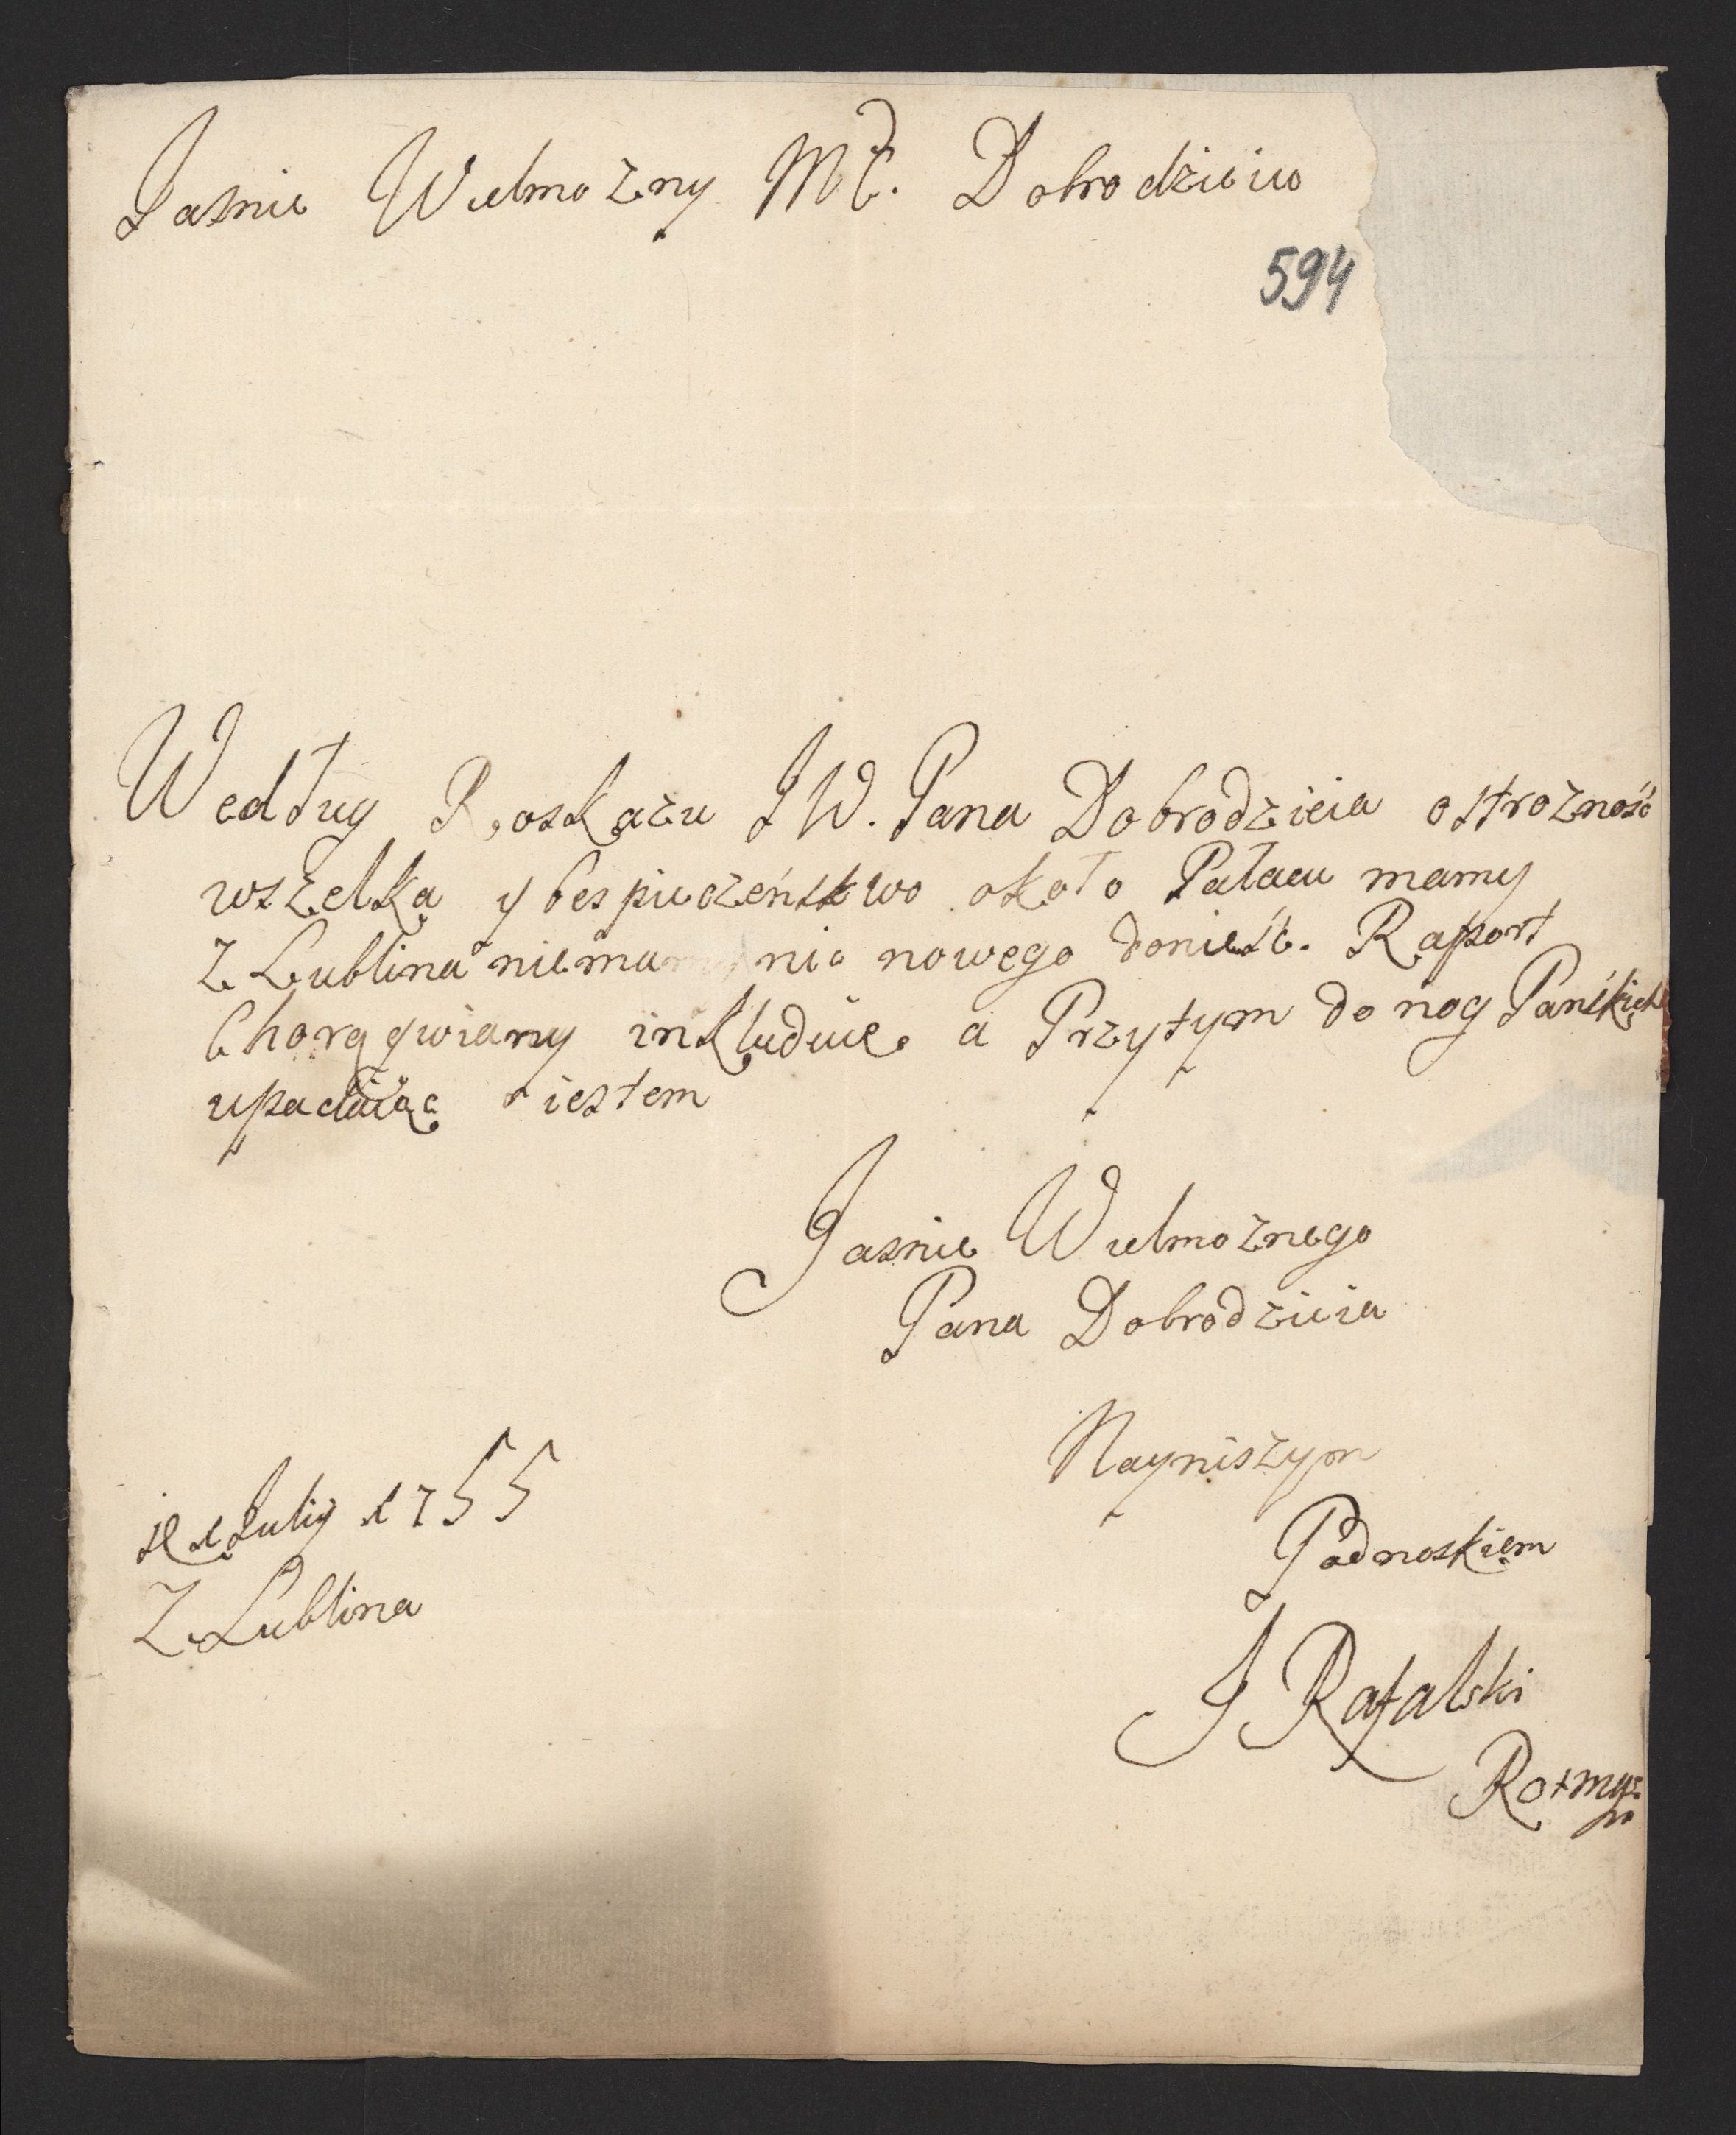 Jasnie Wielmozny Mć. Dobrodzieiu
594
Według Roskazu JW. Pana Dobrodzieia ostrozność
wszelką y bespieczeństwo około Pałacu mamy
Z Lublina niemam nic nowego donieść. Raport
Chorągwiany inkluduię a Przytym do nog Pańskich
upadaiąc iestem
Jasnie Wielmoznego
Pana Dobrodzieia
Nayniszym
Podnoskiem
Julij 1755
Z Lublina
J Rafalski
Rotmz